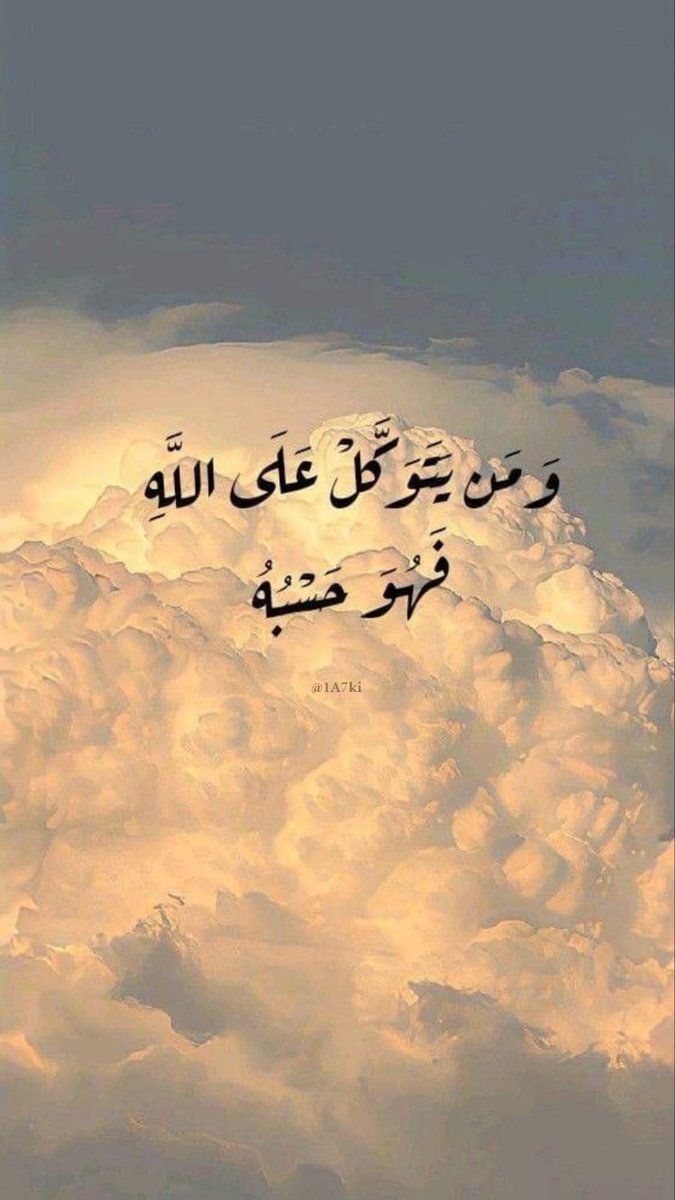 وَمَن يَتَوَكَّلْ عَلَى اللَّهِ
فَهُوَ حَسْبُهُ
@1A7ki